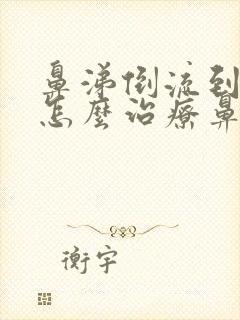 鼻涕倒流到
怎麼治療鼻
衡宇